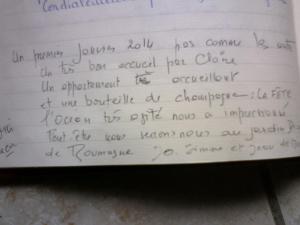 Cordialement
Un premier Janvier 2014 pas comme les
Un très bon accueil par Claire
Un appartement très accueillant
et une bouteille de champagne : la FÊTE
l'océan très agité nous a impressionné
Peut être nous reverrons nous au jardin
de Roumagne Jo. Simone et Jean